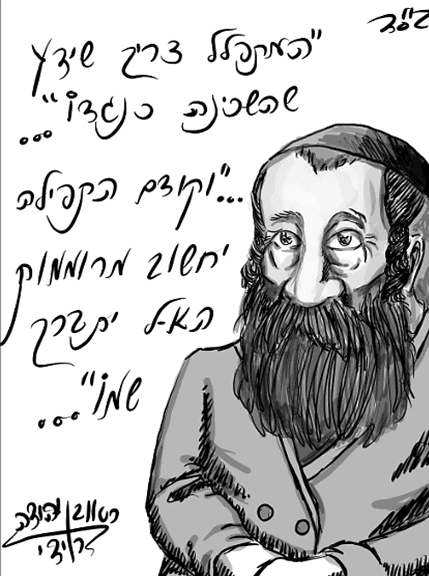 בס"ד
"המתפלל צריך שידע
שהשכינה כנגדו"...
..."וקודם התפילה
יחשוב מרוממות
הא-ל יתברך
שמו"...
יהודה